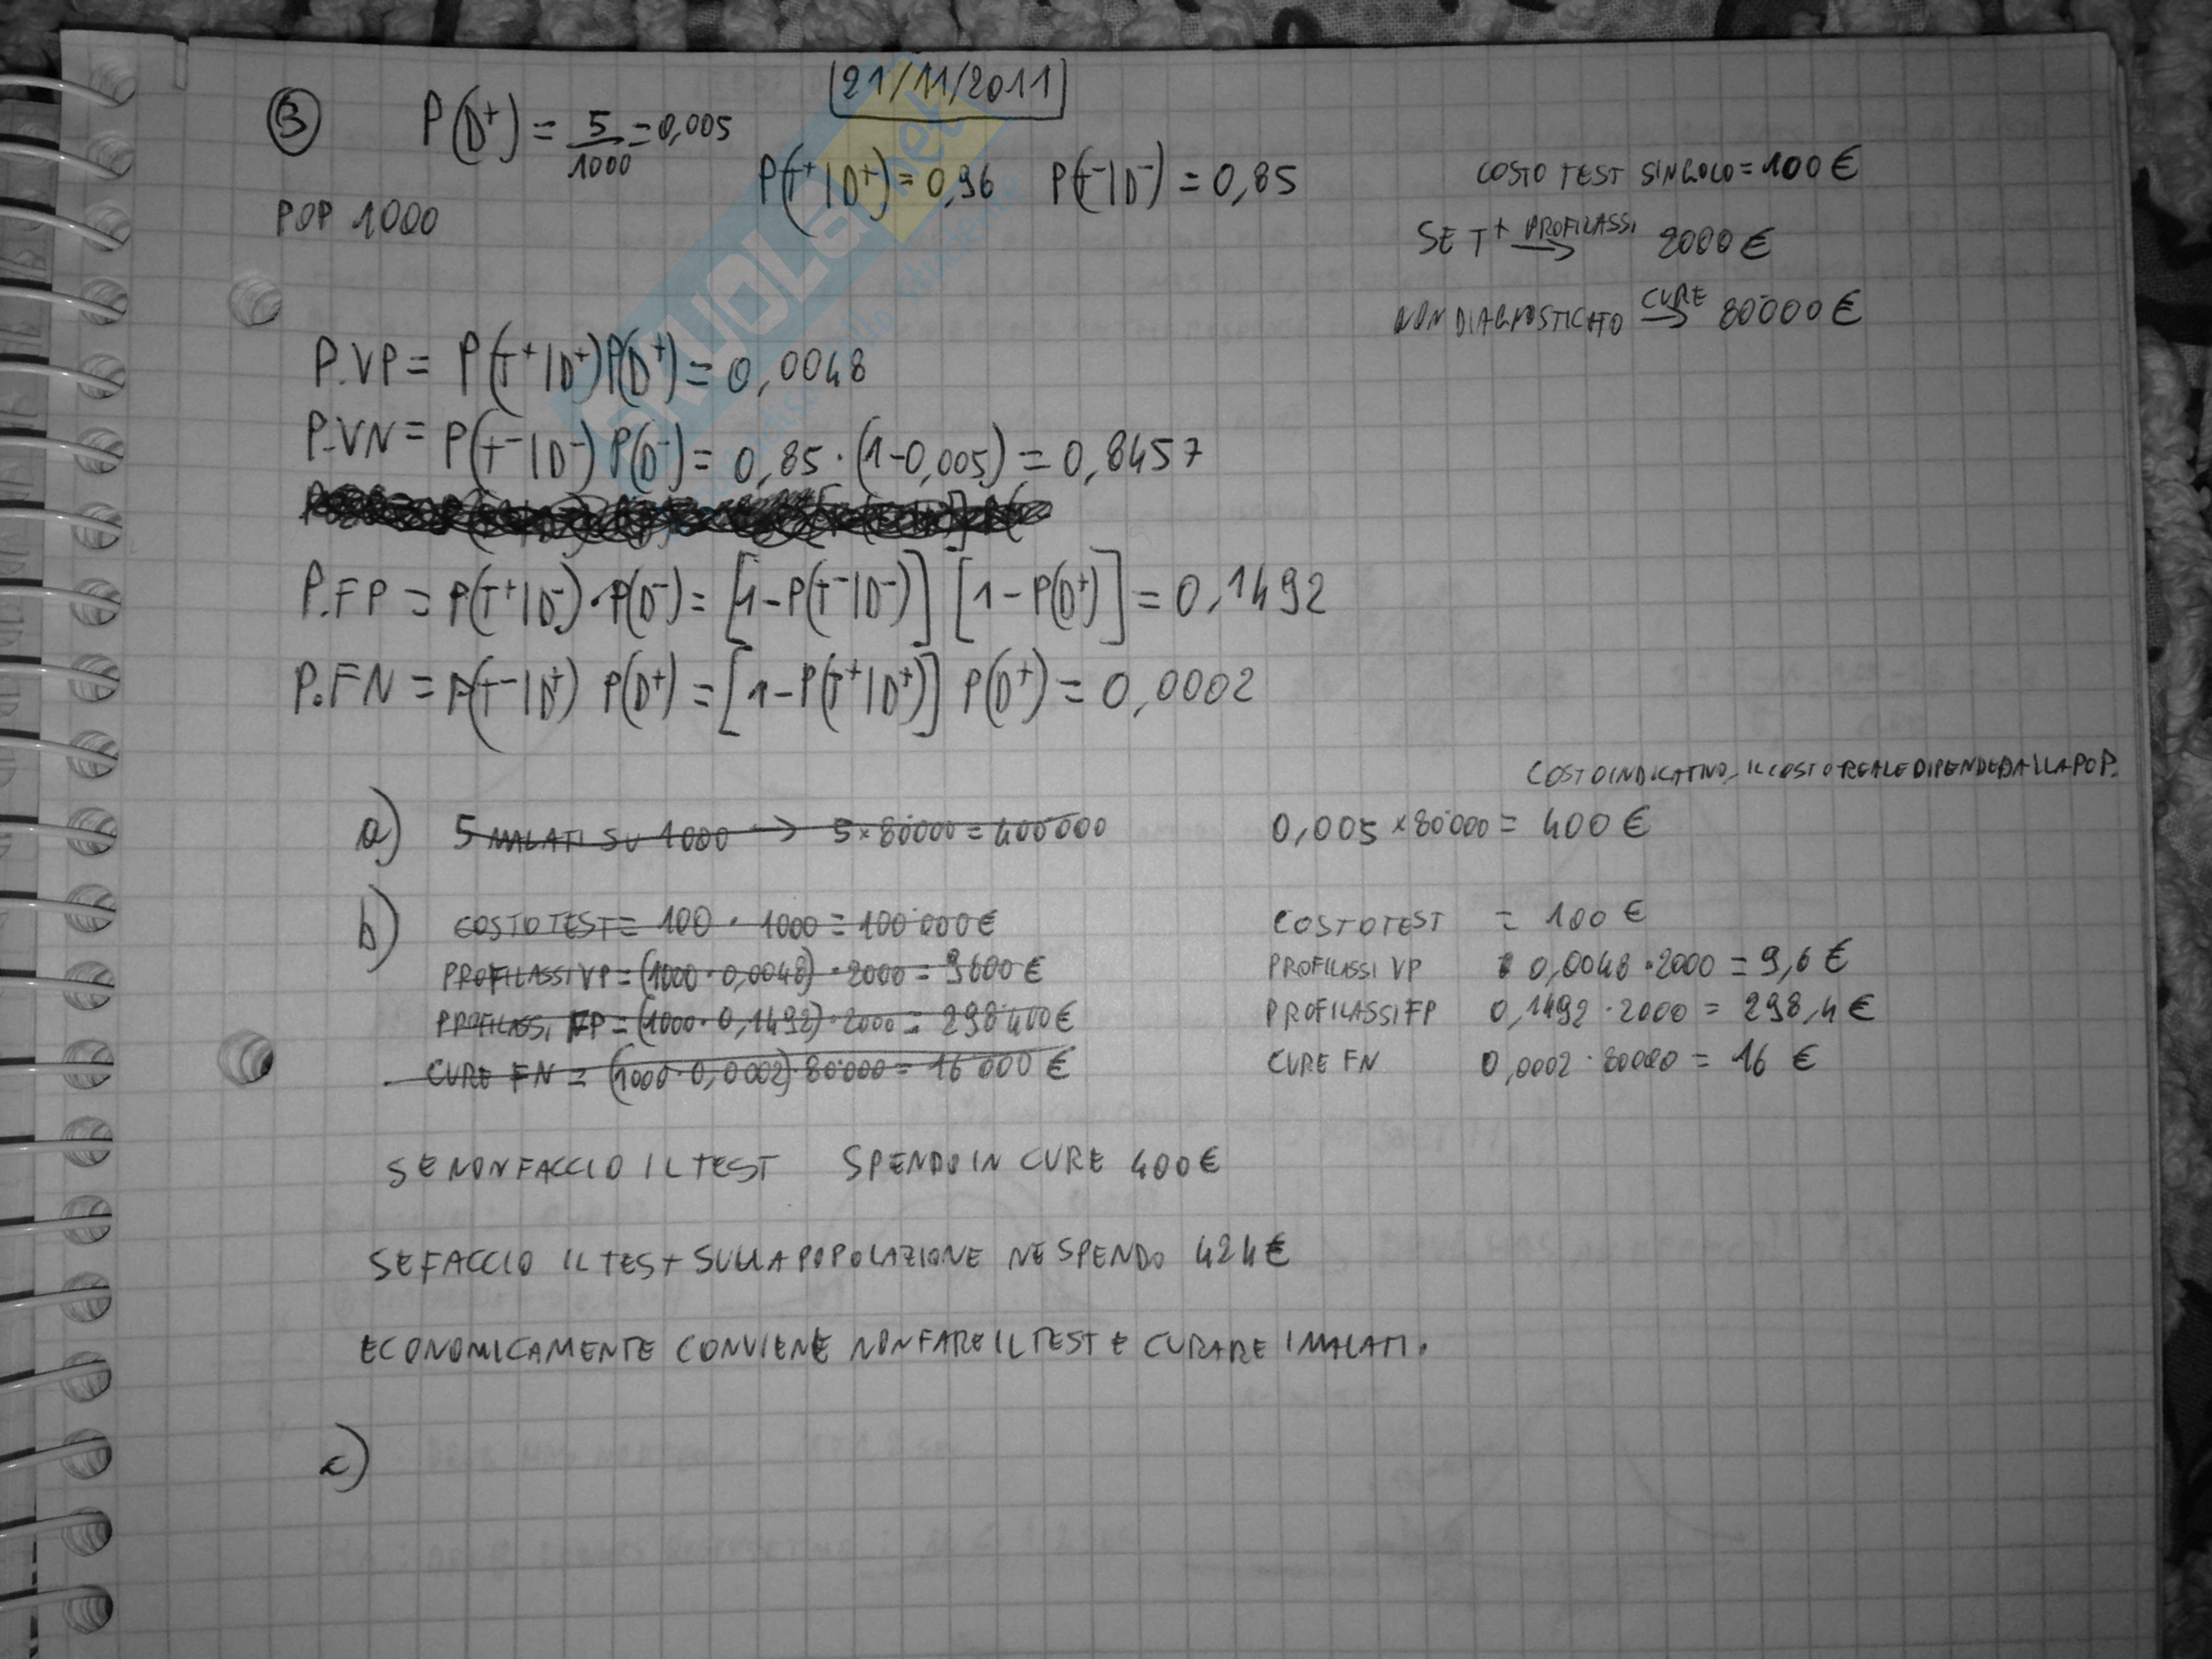 [21/11/2011]
③ P(D+) = 5/1000 = 0,005
P(T+|D+) = 0,96 P(T-|D-) = 0,85
COSTO TEST SINGOLO = 100 €
POP 1000
SE T+ PROFILASSI → 2000 €
NON DIAGNOSTICATO CURE → 80'000 €
P.VP = P(T+|D+)P(D+) = 0,0048
P.VN = P(T-|D-) P(D-) = 0,85 · (1-0,005) = 0,8457
P.FP = P(T+|D-) · P(D-) = [1-P(T-|D-)] [1-P(D+)] = 0,1492
P.FN = P(T-|D+) P(D+) = [1-P(T+|D+)] P(D+) = 0,0002
COSTO INDICATIVO, IL COSTO REALE DIPENDE DALLA POP.
a) 5 MALATI SU 1000 → 5 × 80'000 = 400'000 0,005 × 80'000 = 400 €
b) COSTO TEST = 100 · 1000 = 100'000 € COSTO TEST = 100 €
PROFILASSI VP = (1000 · 0,0048) · 2000 = 9600 € PROFILASSI VP 0,0048 · 2000 = 9,6 €
PROFILASSI FP = (1000 · 0,1492) · 2000 = 298'400 € PROFILASSI FP 0,1492 · 2000 = 298,4 €
CURE FN = (1000 · 0,0002) · 80'000 = 16'000 € CURE FN 0,0002 · 80000 = 16 €
SE NON FACCIO IL TEST SPENDO IN CURE 400 €
SE FACCIO IL TEST SULLA POPOLAZIONE NE SPENDO 424 €
ECONOMICAMENTE CONVIENE NON FARE IL TEST E CURARE I MALATI.
c)
SKUOLA.net